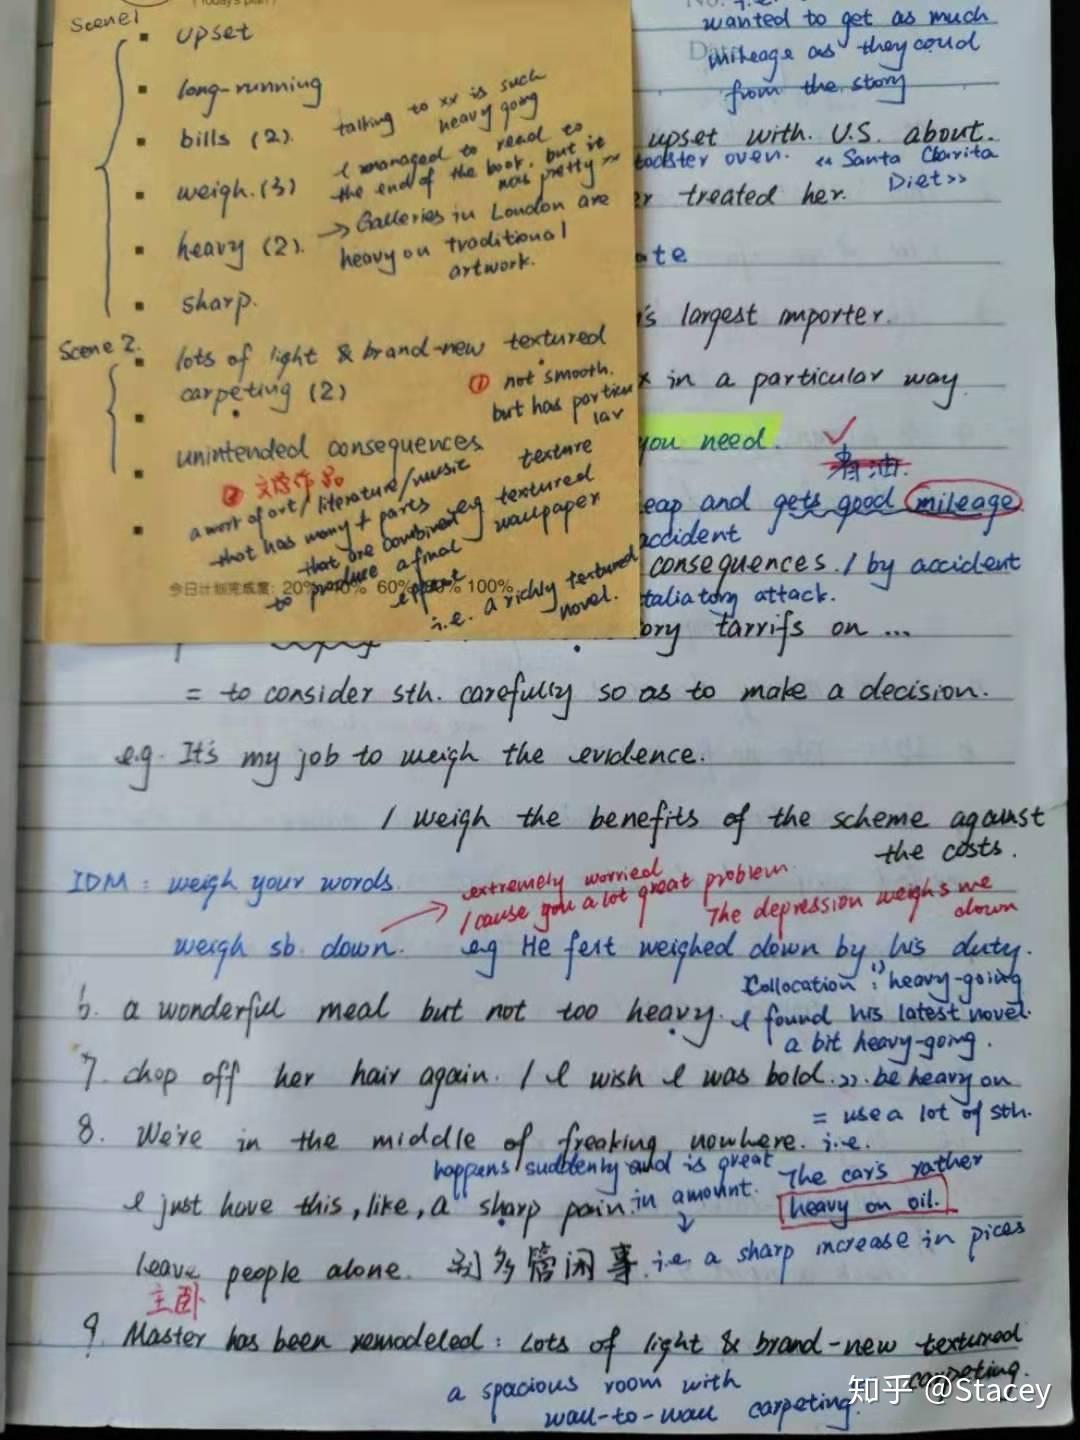 (Today's plan)
Scene 1
upset
long-running
bills (2).
talking to xx is such
heavy going
weigh. (3)
I managed to read to
the end of the book, but it
was pretty ~
heavy (2).
→ Galleries in London are
heavy on traditional
artwork.
sharp.
Scene 2.
lots of light & brand-new textured
carpeting (2)
① not smooth.
but has particu
lar
texture
e.g. textured
wallpaper
unintended consequences
② 文学作品
a work of art / literature / music
that has many + parts
that are combined
to produce a final
effect
i.e. a richly textured
novel.
今日计划完成度: 20% 40% 60% 80% 100%
No. i.e.
wanted to get as much
mileage as they could
from the story
upset with. U.S. about.
toaster oven. << Santa Clarita
Diet>>
er treated her.
ate
's largest importer.
x in a particular way.
you need. ✓
省油.
eap and gets good mileage
accident
consequences. / by accident
taliatory attack.
ory tarrifs on ...
= to consider sth. carefully so as to make a decision.
e.g. It's my job to weigh the evidence.
/ weigh the benefits of the scheme against
the costs.
IDM: weigh your words.
extremely worried
/ cause you a lot great problem.
The depression weighs me
down
weigh sb. down. eg He felt weighed down by his duty.
Collocation: 1) heavy-going
6. a wonderful meal but not too heavy. I found his latest novel.
a bit heavy-going.
7. chop off her hair again. / I wish I was bold. >>. be heavy on
= use a lot of sth.
8. We're in the middle of freaking nowhere. i.e.
happens suddenly and is great
in amount.
The car's rather
heavy on oil.
I just have this, like, a sharp pain.
leave people alone. 别多管闲事. i.e. a sharp increase in pices
主卧
9. Master has been remodeled: Lots of light & brand-new textured
carpeting.
a spacious room with
wall-to-wall carpeting.
知乎 @Stacey